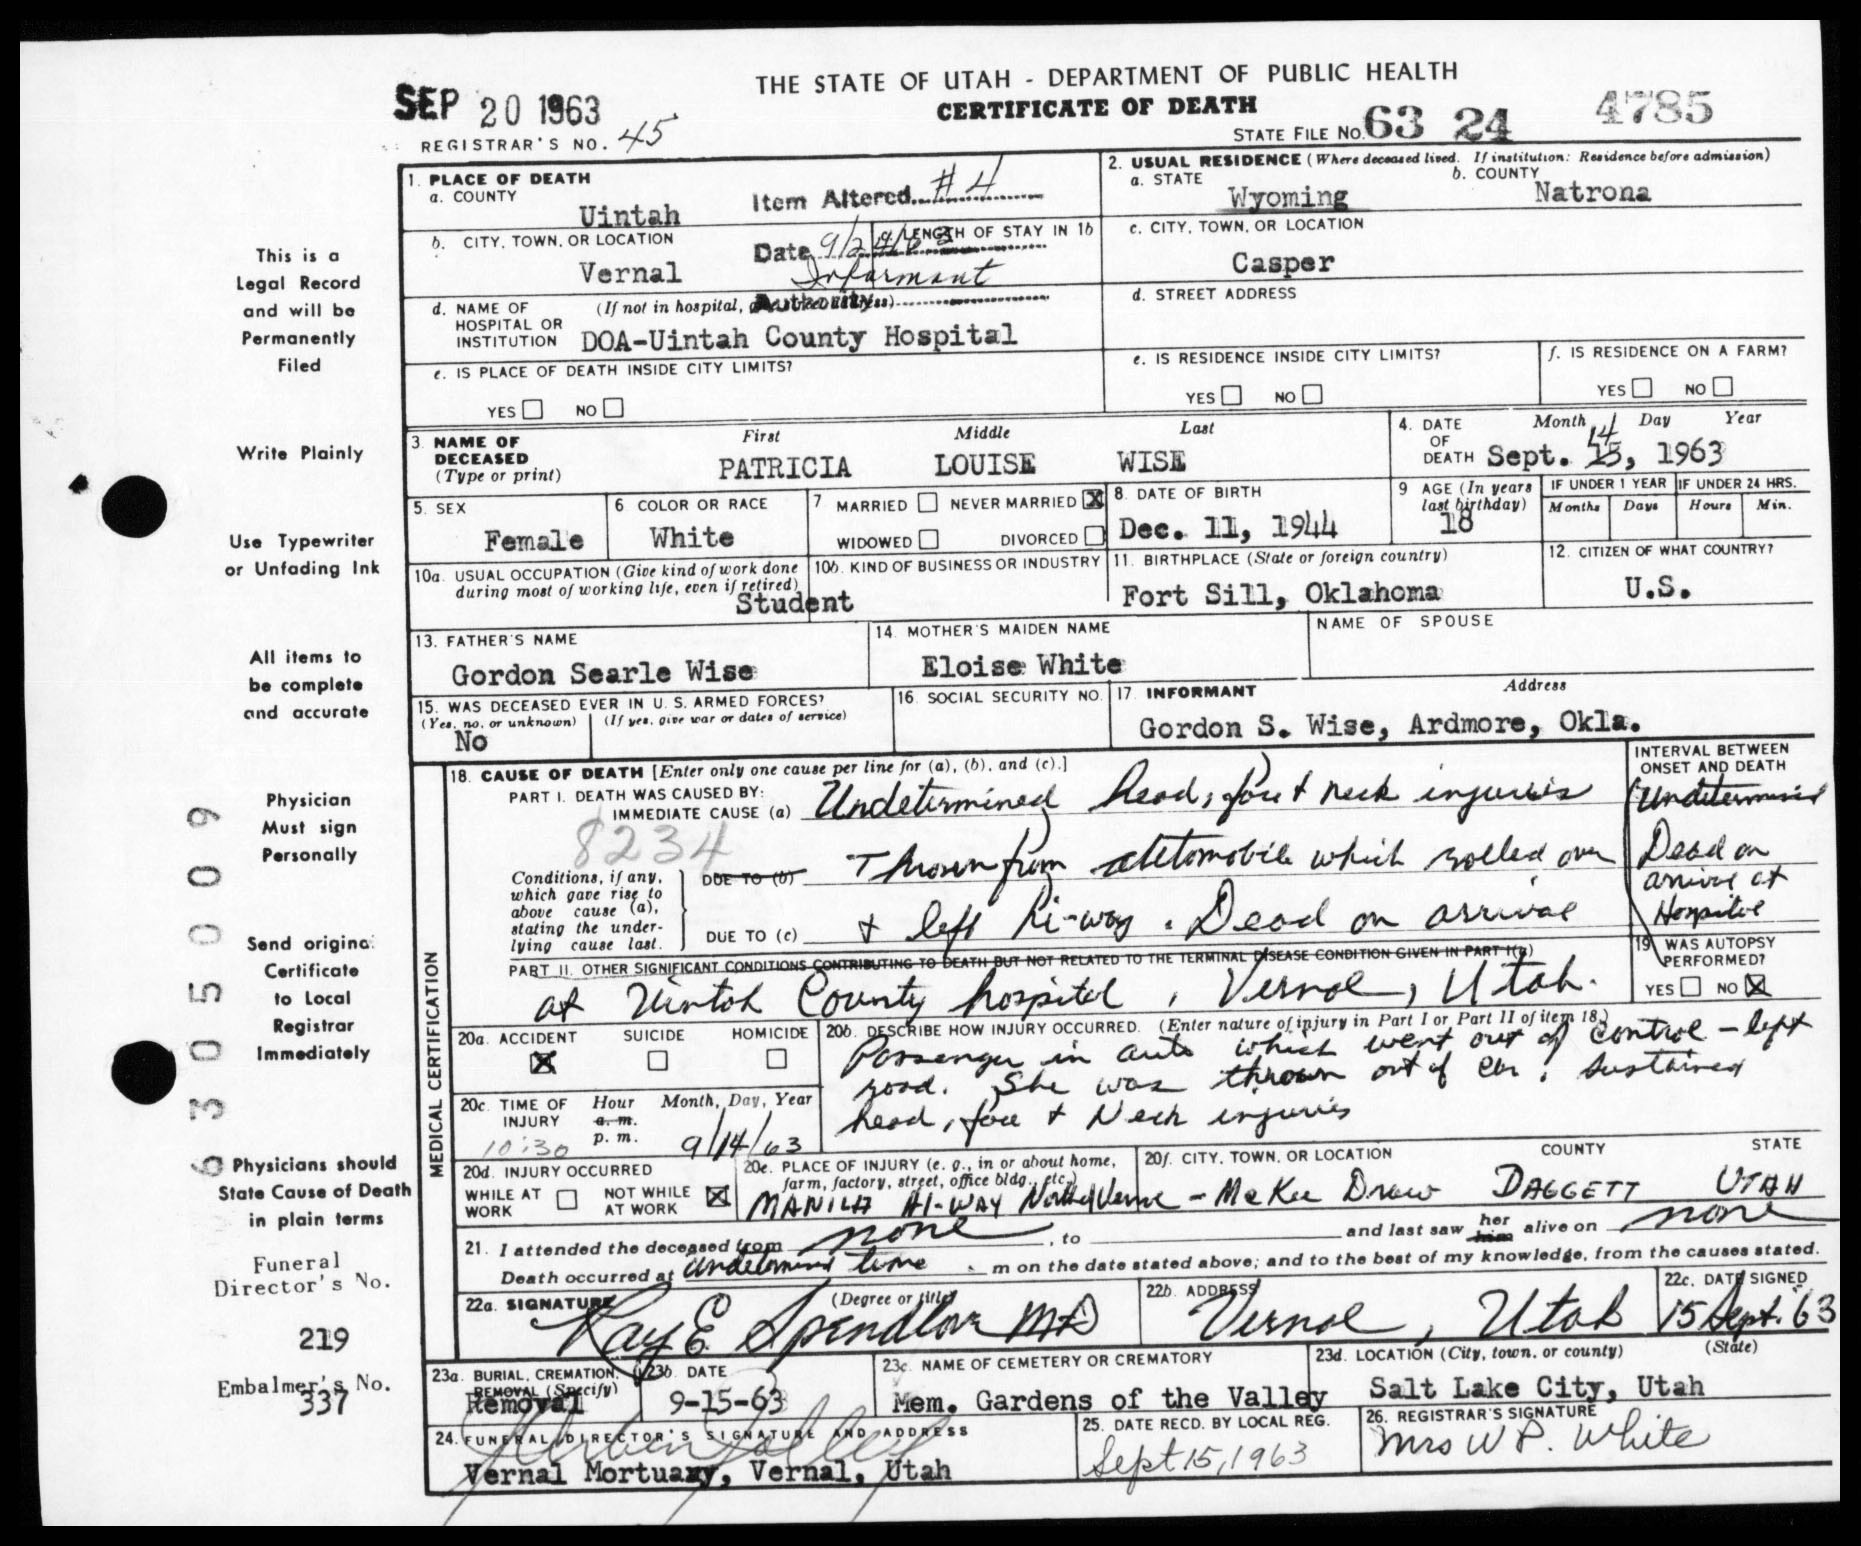 THE STATE OF UTAH - DEPARTMENT OF PUBLIC HEALTH
CERTIFICATE OF DEATH
SEP 20 1963
REGISTRAR'S NO. 45
STATE FILE NO. 63 24 4785
This is a
Legal Record
and will be
Permanently
Filed
Write Plainly
Use Typewriter
or Unfading Ink
All items to
be complete
and accurate
Physician
Must sign
Personally
Send original
Certificate
to Local
Registrar
Immediately
Physicians should
State Cause of Death
in plain terms
Funeral
Director's No.
219
Embalmer's No.
337
6305009
1. PLACE OF DEATH
a. COUNTY
Uintah
Item Altered #4
Date 9/24/63
Informant
Authority
b. CITY, TOWN, OR LOCATION
Vernal
LENGTH OF STAY IN 1b
d. NAME OF HOSPITAL OR INSTITUTION
(If not in hospital,
DOA-Uintah County Hospital
e. IS PLACE OF DEATH INSIDE CITY LIMITS?
YES NO
2. USUAL RESIDENCE (Where deceased lived. If institution: Residence before admission)
a. STATE
Wyoming
b. COUNTY
Natrona
c. CITY, TOWN, OR LOCATION
Casper
d. STREET ADDRESS
e. IS RESIDENCE INSIDE CITY LIMITS?
YES NO
f. IS RESIDENCE ON A FARM?
YES NO
3. NAME OF DECEASED
(Type or print)
First Middle Last
PATRICIA LOUISE WISE
4. DATE OF DEATH
Month Day Year
14
Sept. 15, 1963
5. SEX
Female
6 COLOR OR RACE
White
7 MARRIED NEVER MARRIED X
WIDOWED DIVORCED
8. DATE OF BIRTH
Dec. 11, 1944
9 AGE (In years last birthday)
18
IF UNDER 1 YEAR
Months Days
IF UNDER 24 HRS.
Hours Min.
10a. USUAL OCCUPATION (Give kind of work done
during most of working life, even if retired)
Student
10b. KIND OF BUSINESS OR INDUSTRY
11. BIRTHPLACE (State or foreign country)
Fort Sill, Oklahoma
12. CITIZEN OF WHAT COUNTRY?
U.S.
13. FATHER'S NAME
Gordon Searle Wise
14. MOTHER'S MAIDEN NAME
Eloise White
NAME OF SPOUSE
15. WAS DECEASED EVER IN U. S. ARMED FORCES?
(Yes, no, or unknown) (If yes, give war or dates of service)
No
16. SOCIAL SECURITY NO.
17. INFORMANT Address
Gordon S. Wise, Ardmore, Okla.
MEDICAL CERTIFICATION
18. CAUSE OF DEATH [Enter only one cause per line for (a), (b), and (c).]
PART I. DEATH WAS CAUSED BY:
IMMEDIATE CAUSE (a) Undetermined head, face & neck injuries
8234
Conditions, if any,
which gave rise to
above cause (a),
stating the under-
lying cause last.
DUE TO (b) Thrown from automobile which rolled over
DUE TO (c) & left hi-way. Dead on arrival
INTERVAL BETWEEN
ONSET AND DEATH
Undetermined
Dead on
arrive at
Hospital
PART II. OTHER SIGNIFICANT CONDITIONS CONTRIBUTING TO DEATH BUT NOT RELATED TO THE TERMINAL DISEASE CONDITION GIVEN IN PART I(a)
at Uintah County hospital, Vernal, Utah.
19. WAS AUTOPSY
PERFORMED?
YES NO X
20a. ACCIDENT SUICIDE HOMICIDE
X
20b. DESCRIBE HOW INJURY OCCURRED. (Enter nature of injury in Part I or Part II of item 18.)
Passenger in auto which went out of control - left
road. She was thrown out of car. Sustained
head, face & Neck injuries
20c. TIME OF INJURY
Hour Month, Day, Year
a. m.
p. m.
10:30 9/14/63
20d. INJURY OCCURRED
WHILE AT WORK NOT WHILE AT WORK X
20e. PLACE OF INJURY (e. g., in or about home,
farm, factory, street, office bldg., etc.)
MANILA HI-WAY North Vernal - McKee Draw
20f. CITY, TOWN, OR LOCATION COUNTY STATE
DAGGETT UTAH
21. I attended the deceased from none, to and last saw her him alive on none
Death occurred at undetermined time m on the date stated above; and to the best of my knowledge, from the causes stated.
22a. SIGNATURE (Degree or title)
Ray E. Spendlove MD
22b. ADDRESS
Vernal, Utah
22c. DATE SIGNED
15 Sept. 63
23a. BURIAL, CREMATION,
REMOVAL (Specify)
Removal
23b. DATE
9-15-63
23c. NAME OF CEMETERY OR CREMATORY
Mem. Gardens of the Valley
23d. LOCATION (City, town, or county) (State)
Salt Lake City, Utah
24. FUNERAL DIRECTOR'S SIGNATURE AND ADDRESS
Vernal Mortuary, Vernal, Utah
25. DATE RECD. BY LOCAL REG.
Sept 15, 1963
26. REGISTRAR'S SIGNATURE
Mrs W P. White